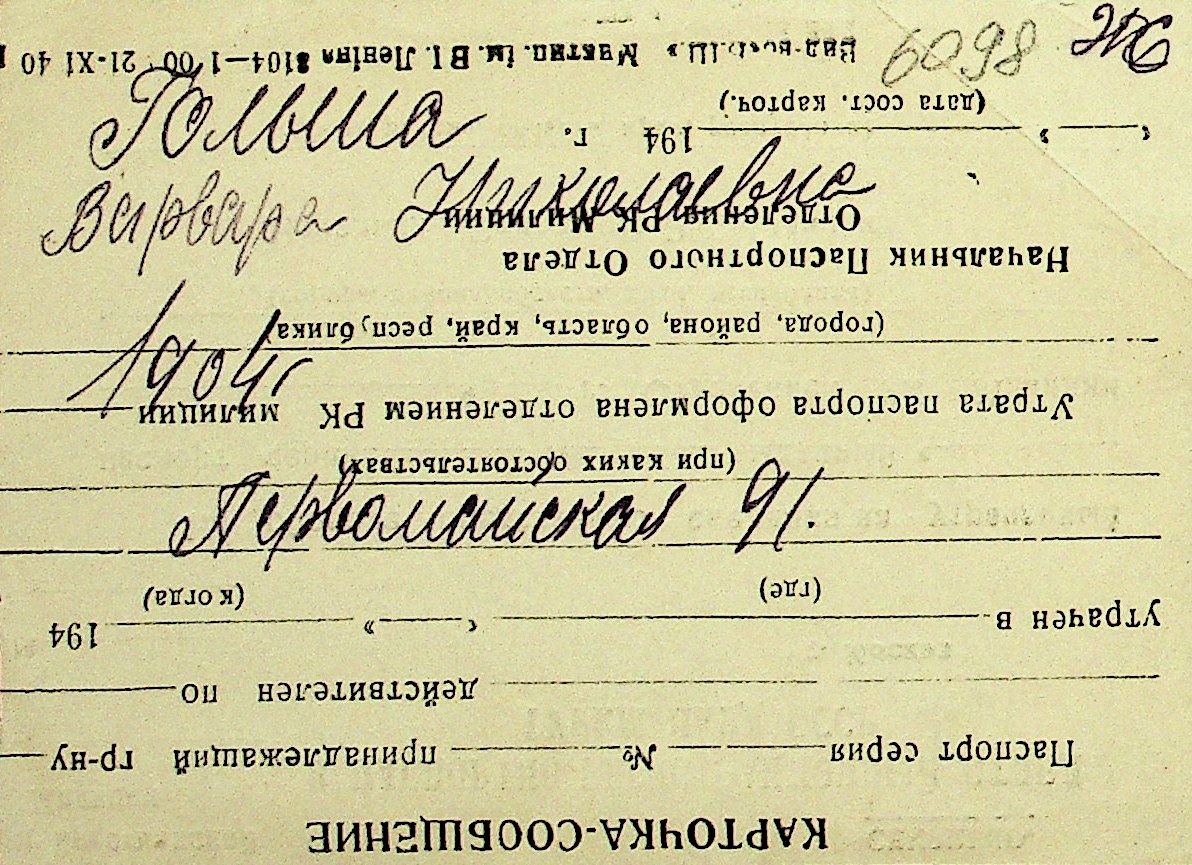 6098
Гольша
Варвара Николаевна
1904 г
Первомайская 91.
КАРТОЧКА-СООБЩЕНИЕ
Паспорт серия № принадлежащий гр-ну
действителен по
утрачен в „ “ 194
(где) (когда)
(при каких обстоятельствах)
Утрата паспорта оформлена отделением РК милиции
(города, района, область, край, республика)
Начальник Паспортного Отдела
Отделения РК Милиции
„ “ 194 г.
(дата сост. карточ.)
ім. ВІ. Леніна 8104—1 00 21-XI 40